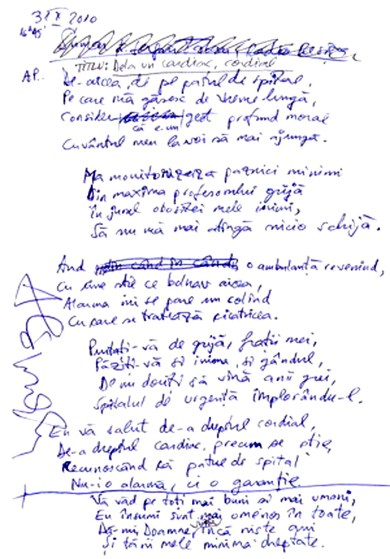 31 X 2010
16 45
TITLU: De la un cardiac, cordial
A.P.
De-aicea, de pe patul de spital,
Pe care mă găsesc de vreme lungă,
Consider că e un gest profund moral
Cuvântul meu la voi să mai ajungă.
Mă monitorizează paznici minimi
Din maxima profesorului grijă
În jurul obositei mele inimi,
Să nu mă mai atingă nicio schijă.
Aud o ambulanță revenind,
Cu cine știe ce bolnav aicea,
Alarma mi se pare un colind
Cu care se tratează cicatricea.
Purtați-vă de grijă, frații mei,
Păziți-vă și inima, și gândul,
De nu doriți să vină anii grei,
Spitalul de urgență implorându-l.
Eu vă salut de-a dreptul cordial,
De-a dreptul cardiac, precum se știe,
Recunoscând că patul de spital
Nu-i o alarmă, ci o garanție
Vă văd pe toți mai buni și mai umani,
Eu însumi sunt mai omenos în toate,
Dă-mi, Doamne, încă niște ani
Și țării mele minima dreptate.